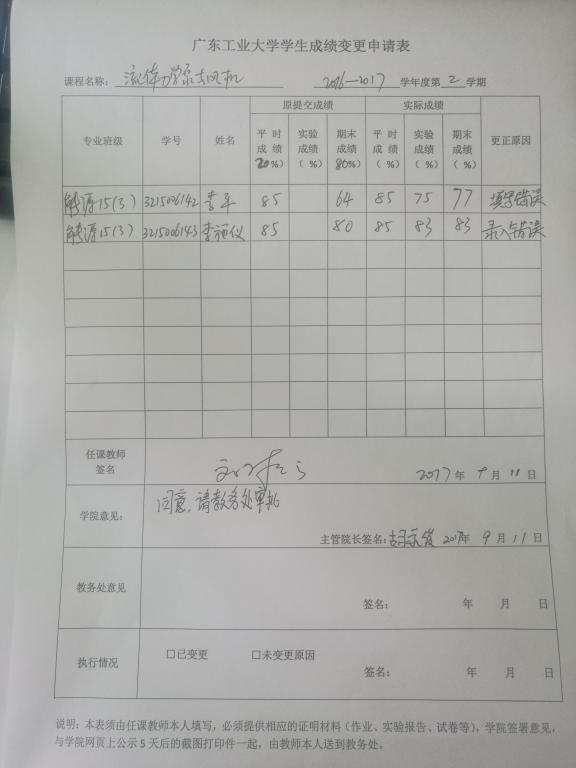 广东工业大学学生成绩变更申请表
课程名称: 流体力学泵与风机 2016—2017 学年度第 2 学期
专业班级 学号 姓名 原提交成绩 实际成绩 更正原因
平时成绩 20%) 实验成绩 ( %) 期末成绩 80%) 平时成绩 ( %) 实验成绩 ( %) 期末成绩 ( %)
能源15(3) 3215006142 李 85 64 85 75 77 填写错误
能源15(3) 3215006143 李 仪 85 80 85 83 83 录入错误
任课教师签名 2017 年 9 月 11 日
学院意见: 同意,请教务处审批
主管院长签名: 2017年 9 月 11 日
教务处意见
签名: 年 月 日
执行情况 □已变更 □未变更原因
签名: 年 月 日
说明:本表须由任课教师本人填写,必须提供相应的证明材料(作业、实验报告、试卷等),学院签署意见,
与学院网页上公示 5 天后的截图打印件一起,由教师本人送到教务处。